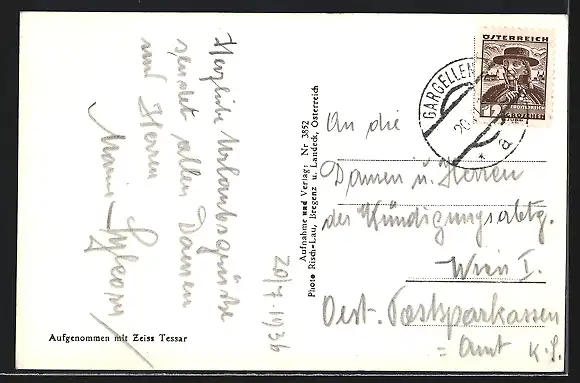 Herzliche Urlaubsgrüße
sendet allen Damen
und Herren
20/7.1936
Aufgenommen mit Zeiss Tessar
Aufnahme und Verlag: Nr 3852
Photo Risch-Lau, Bregenz u. Landeck, Österreich
ÖSTERREICH
12
GROSCHEN
GARGELLEN
20.
a
An die
Damen u. Herren
der Kündigungsabtg.
Wien I.
Oest. Postsparkassen
= Amt K.S.